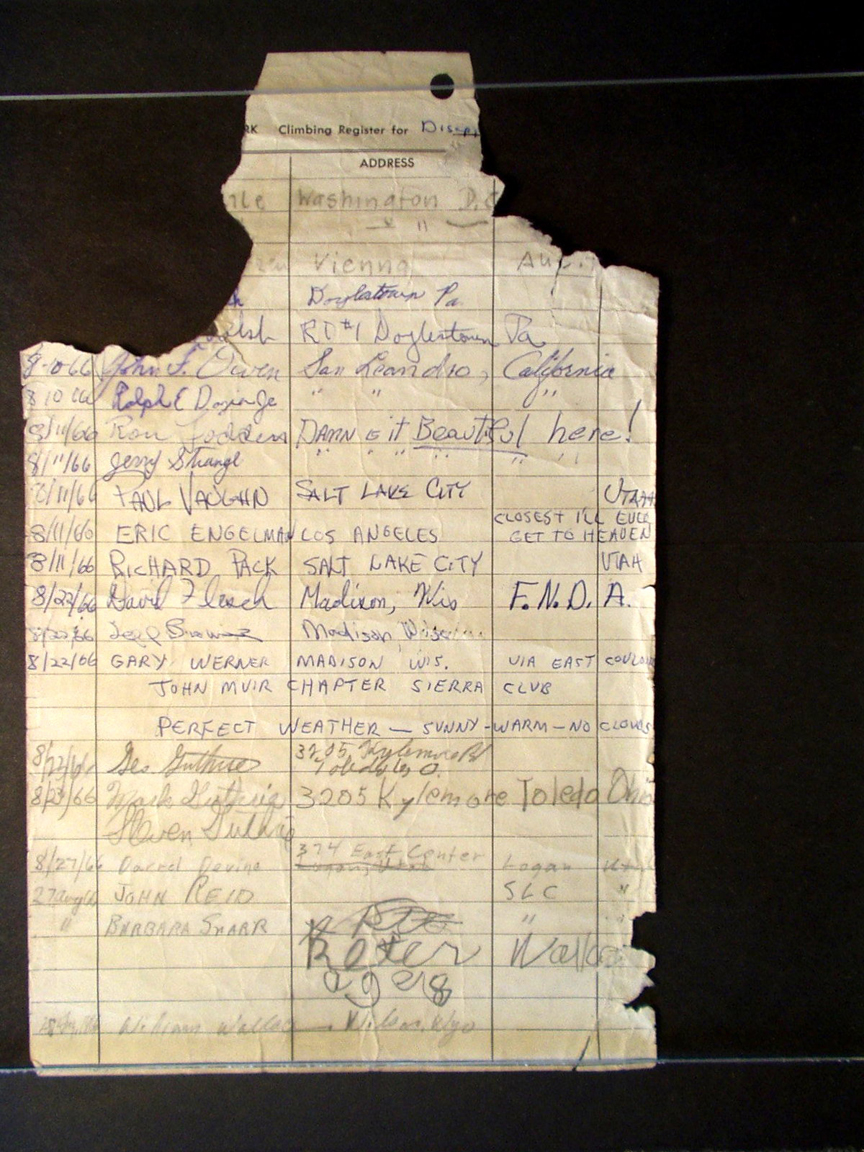 RK Climbing Register for
ADDRESS
Washington D.C
"
Vienna Aug.
Doylestown Pa.
RD #1 Doylestown Pa
8-10 66 John S. Owen San Leandro, California
8 10 66 Ralph E " " "
8/11/66 Ron DAMN is it Beautiful here!
8/11/66 Jerry Strange " " " " " "
8/11/66 PAUL VAUGHN SALT LAKE CITY UTAH
CLOSEST I'LL EVER
8/11/66 ERIC ENGELMAN LOS ANGELES GET TO HEAVEN
8/11/66 RICHARD PACK SALT LAKE CITY UTAH
8/22/66 David Madison, Wis F.N.D.A.
8/22/66 Madison, Wisc
8/22/66 GARY WERNER MADISON WIS. VIA EAST
JOHN MUIR CHAPTER SIERRA CLUB
PERFECT WEATHER — SUNNY-WARM-NO CLOUDS
8/22/66 Geo Guthrie 3205 Kylemore Rd
Toledo O.
8/23/66 Mark Guthrie 3205 Kylemore Toledo Ohio
Steven Guthrie
374 East Center
8/27/66 Darrel Devine Logan, Utah Logan Utah
27 Aug 66 JOHN REID SLC "
" BARBARA SNARR " "
Peter Wallace
age 8
William Wallace Wilson, Wyo